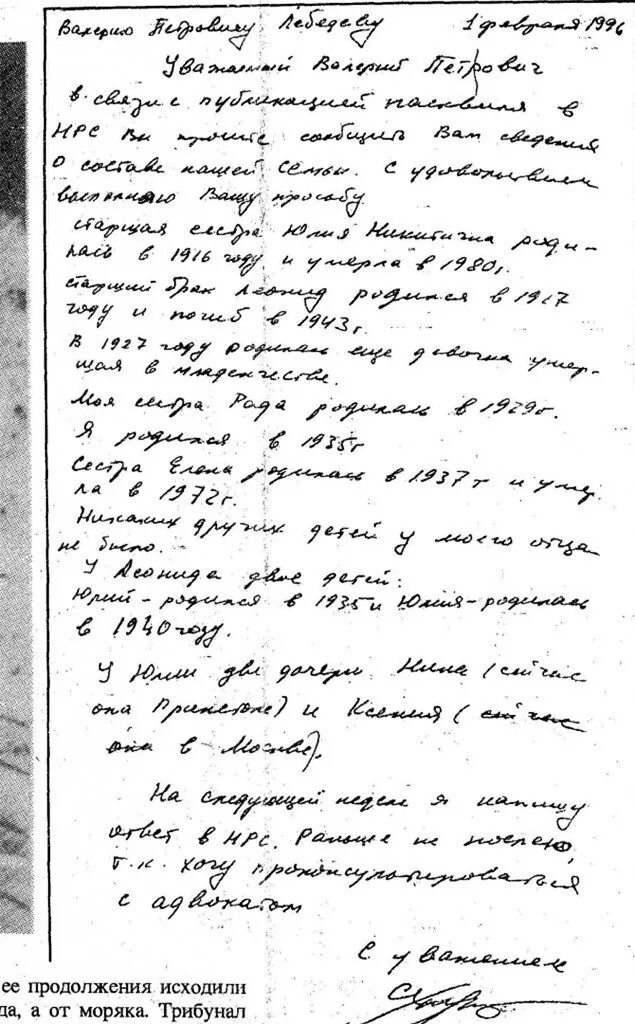 Валерию Петровичу Лебедеву 1 февраля 1996
Уважаемый Валерий Петрович
в связи с публикацией пасквиля в
НРС Вы просите сообщить Вам сведения
о составе нашей семьи. С удовольствием
выполняю Вашу просьбу
старшая сестра Юлия Никитична роди-
лась в 1916 году и умерла в 1980г.
старший брат Леонид родился в 1917
году и погиб в 1943г.
В 1927 году родилась еще девочка умер-
шая в младенчестве.
Моя сестра Рада родилась в 1929г.
Я родился в 1935г
Сестра Елена родилась в 1937г и умер
ла в 1972г.
Никаких других детей у моего отца
не было.
У Леонида двое детей:
Юрий - родился в 1935 и Юлия - родилась
в 1940 году.
У Юлии две дочери Нина (сейчас
она Принстоне) и Ксения (сейчас
она в Москве).
На следующей неделе я напишу
ответ в НРС. Раньше не поспею,
т.к. хочу проконсультироваться
с адвокатом
С уважением
ее продолжения исходили
да, а от моряка. Трибунал